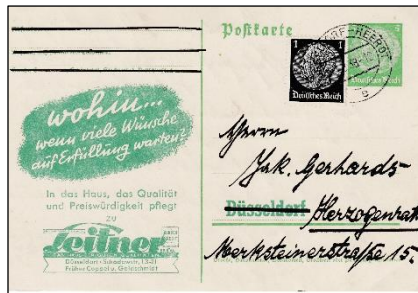 Postkarte
DORF-HEERDT
1 1
Deutsches Reich
5
Deutsches Reich
b
wohin...
wenn viele Wünsche
auf Erfüllung warten?
In das Haus, das Qualität
und Preiswürdigkeit pflegt
zu
Leitner
Düsseldorf · Schadowstr.
Früher Coppel u. Goldschmidt
Herrn
Jak. Gerhards-
Düsseldorf Herzogenrath
Merksteinerstraße 15.